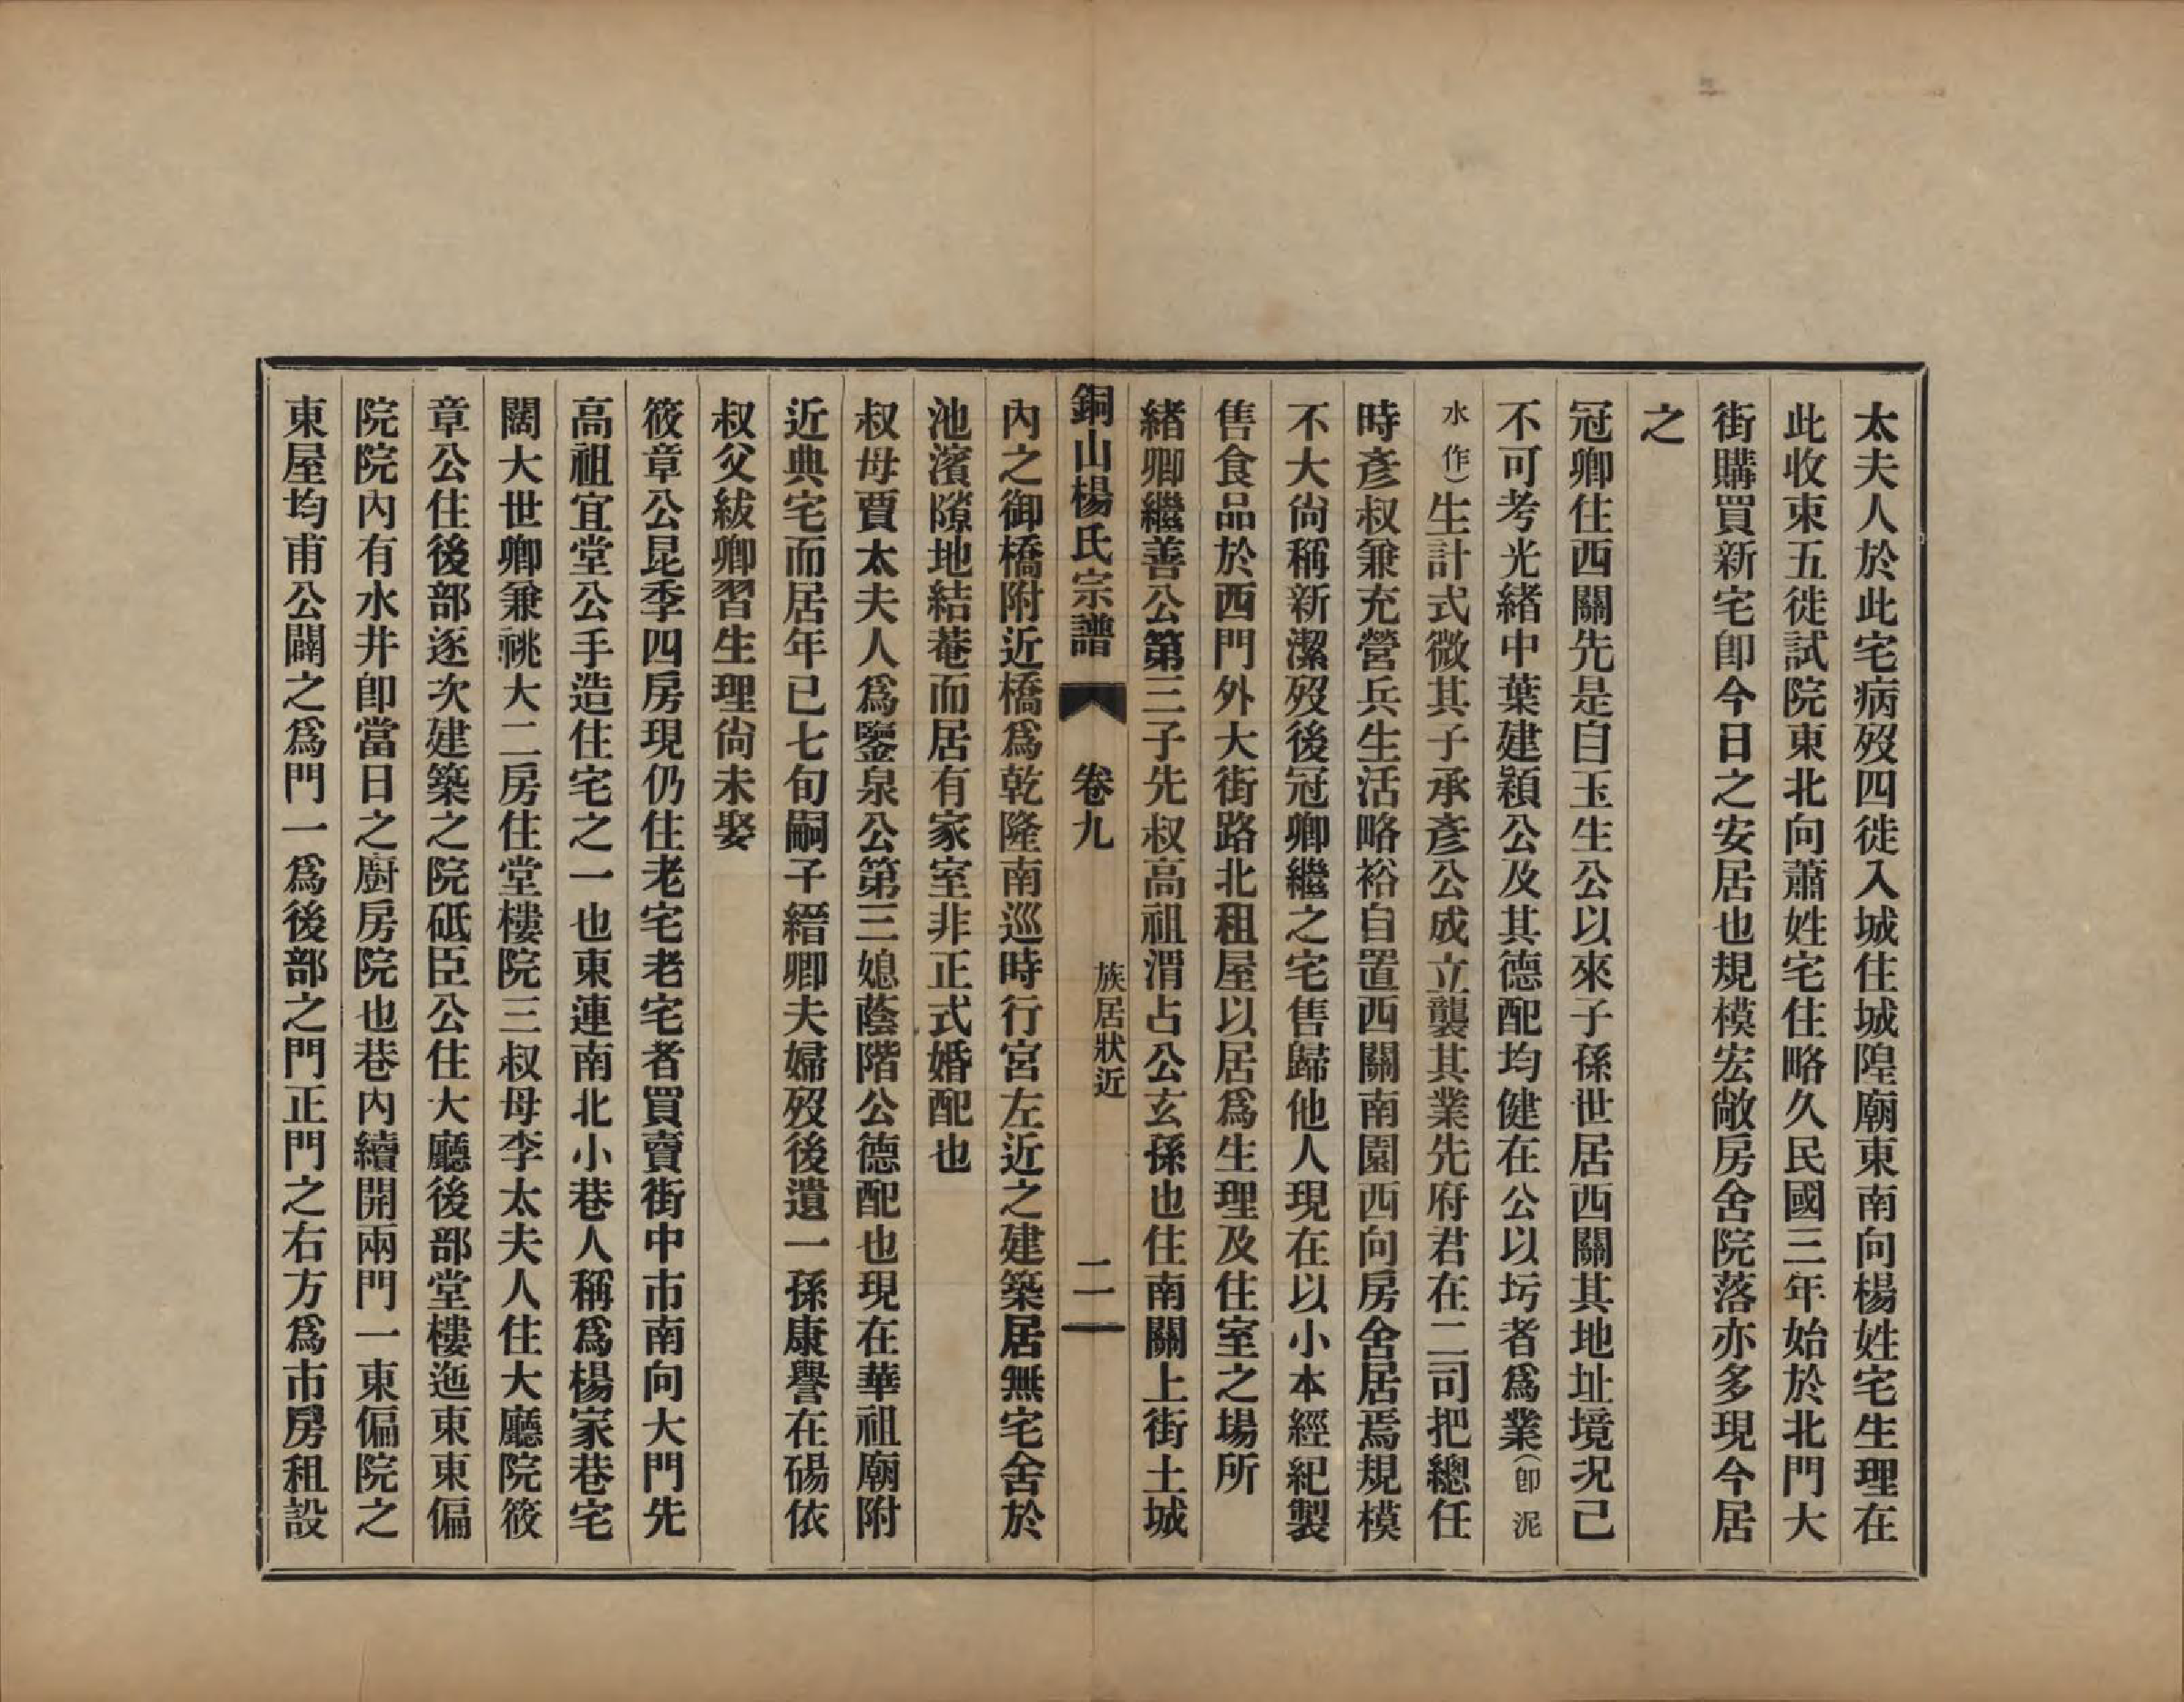 太夫人於此宅病歿四徙入城住城隍廟東南向楊姓宅生理在
此收束五徙試院東北向蕭姓宅住略久民國三年始於北門大
街購買新宅卽今日之安居也規模宏敞房舍院落亦多現今居
之
冠卿住西關先是自玉生公以來子孫世居西關其地址境况己
不可考光緒中葉建穎公及其德配均健在公以圬者爲業(卽泥
水作)生計式微其子承彥公成立襲其業先府君在二司把總任
時彥叔兼充營兵生活略裕自置西關南園西向房舍居焉規模
不大尙稱新潔歿後冠卿繼之宅售歸他人現在以小本經紀製
售食品於西門外大街路北租屋以居爲生理及住室之場所
緒卿繼善公第三子先叔高祖渭占公玄孫也住南關上街土城
銅山楊氏宗譜 卷九 族居狀近 二
內之御橋附近橋爲乾隆南巡時行宮左近之建築居無宅舍於
池濱隙地結菴而居有家室非正式婚配也
叔母賈太夫人爲鑒泉公第三媳蔭階公德配也現在華祖廟附
近典宅而居年已七旬嗣子縉卿夫婦歿後遺一孫康譽在碭依
叔父紱卿習生理尙未娶
筱章公昆季四房現仍住老宅老宅者買賣街中市南向大門先
高祖宜堂公手造住宅之一也東連南北小巷人稱爲楊家巷宅
闊大世卿兼祧大二房住堂樓院三叔母李太夫人住大廳院筱
章公住後部逐次建築之院砥臣公住大廳後部堂樓迤東東偏
院院內有水井卽當日之廚房院也巷內續開兩門一東偏院之
東屋均甫公闢之爲門一爲後部之門正門之右方爲市房租設